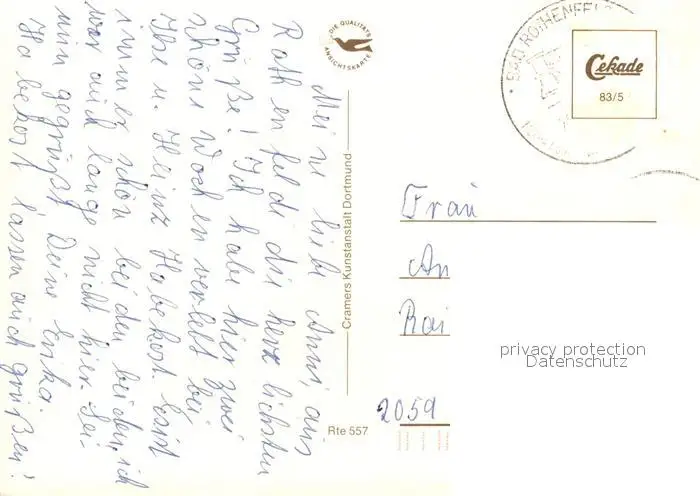 Meine liebe Anni, aus
Rothenfelde die herzlichsten
Grüße! Ich habe hier zwei
schöne Wochen verlebt bei
Ilse u. Heinz Habekost. Es ist
immer schön bei den beiden, ich
war auch lange nicht hier. Sei
nun gegrüßt Deine Erika.
Habekost lassen auch grüßen!
DIE QUALITÄTS
ANSICHTSKARTE
Cramers Kunstanstalt Dortmund
Rte 557
BAD ROTHENFELD
Cekade
83/5
Frau
An
Rai
2059
privacy protection
Datenschutz